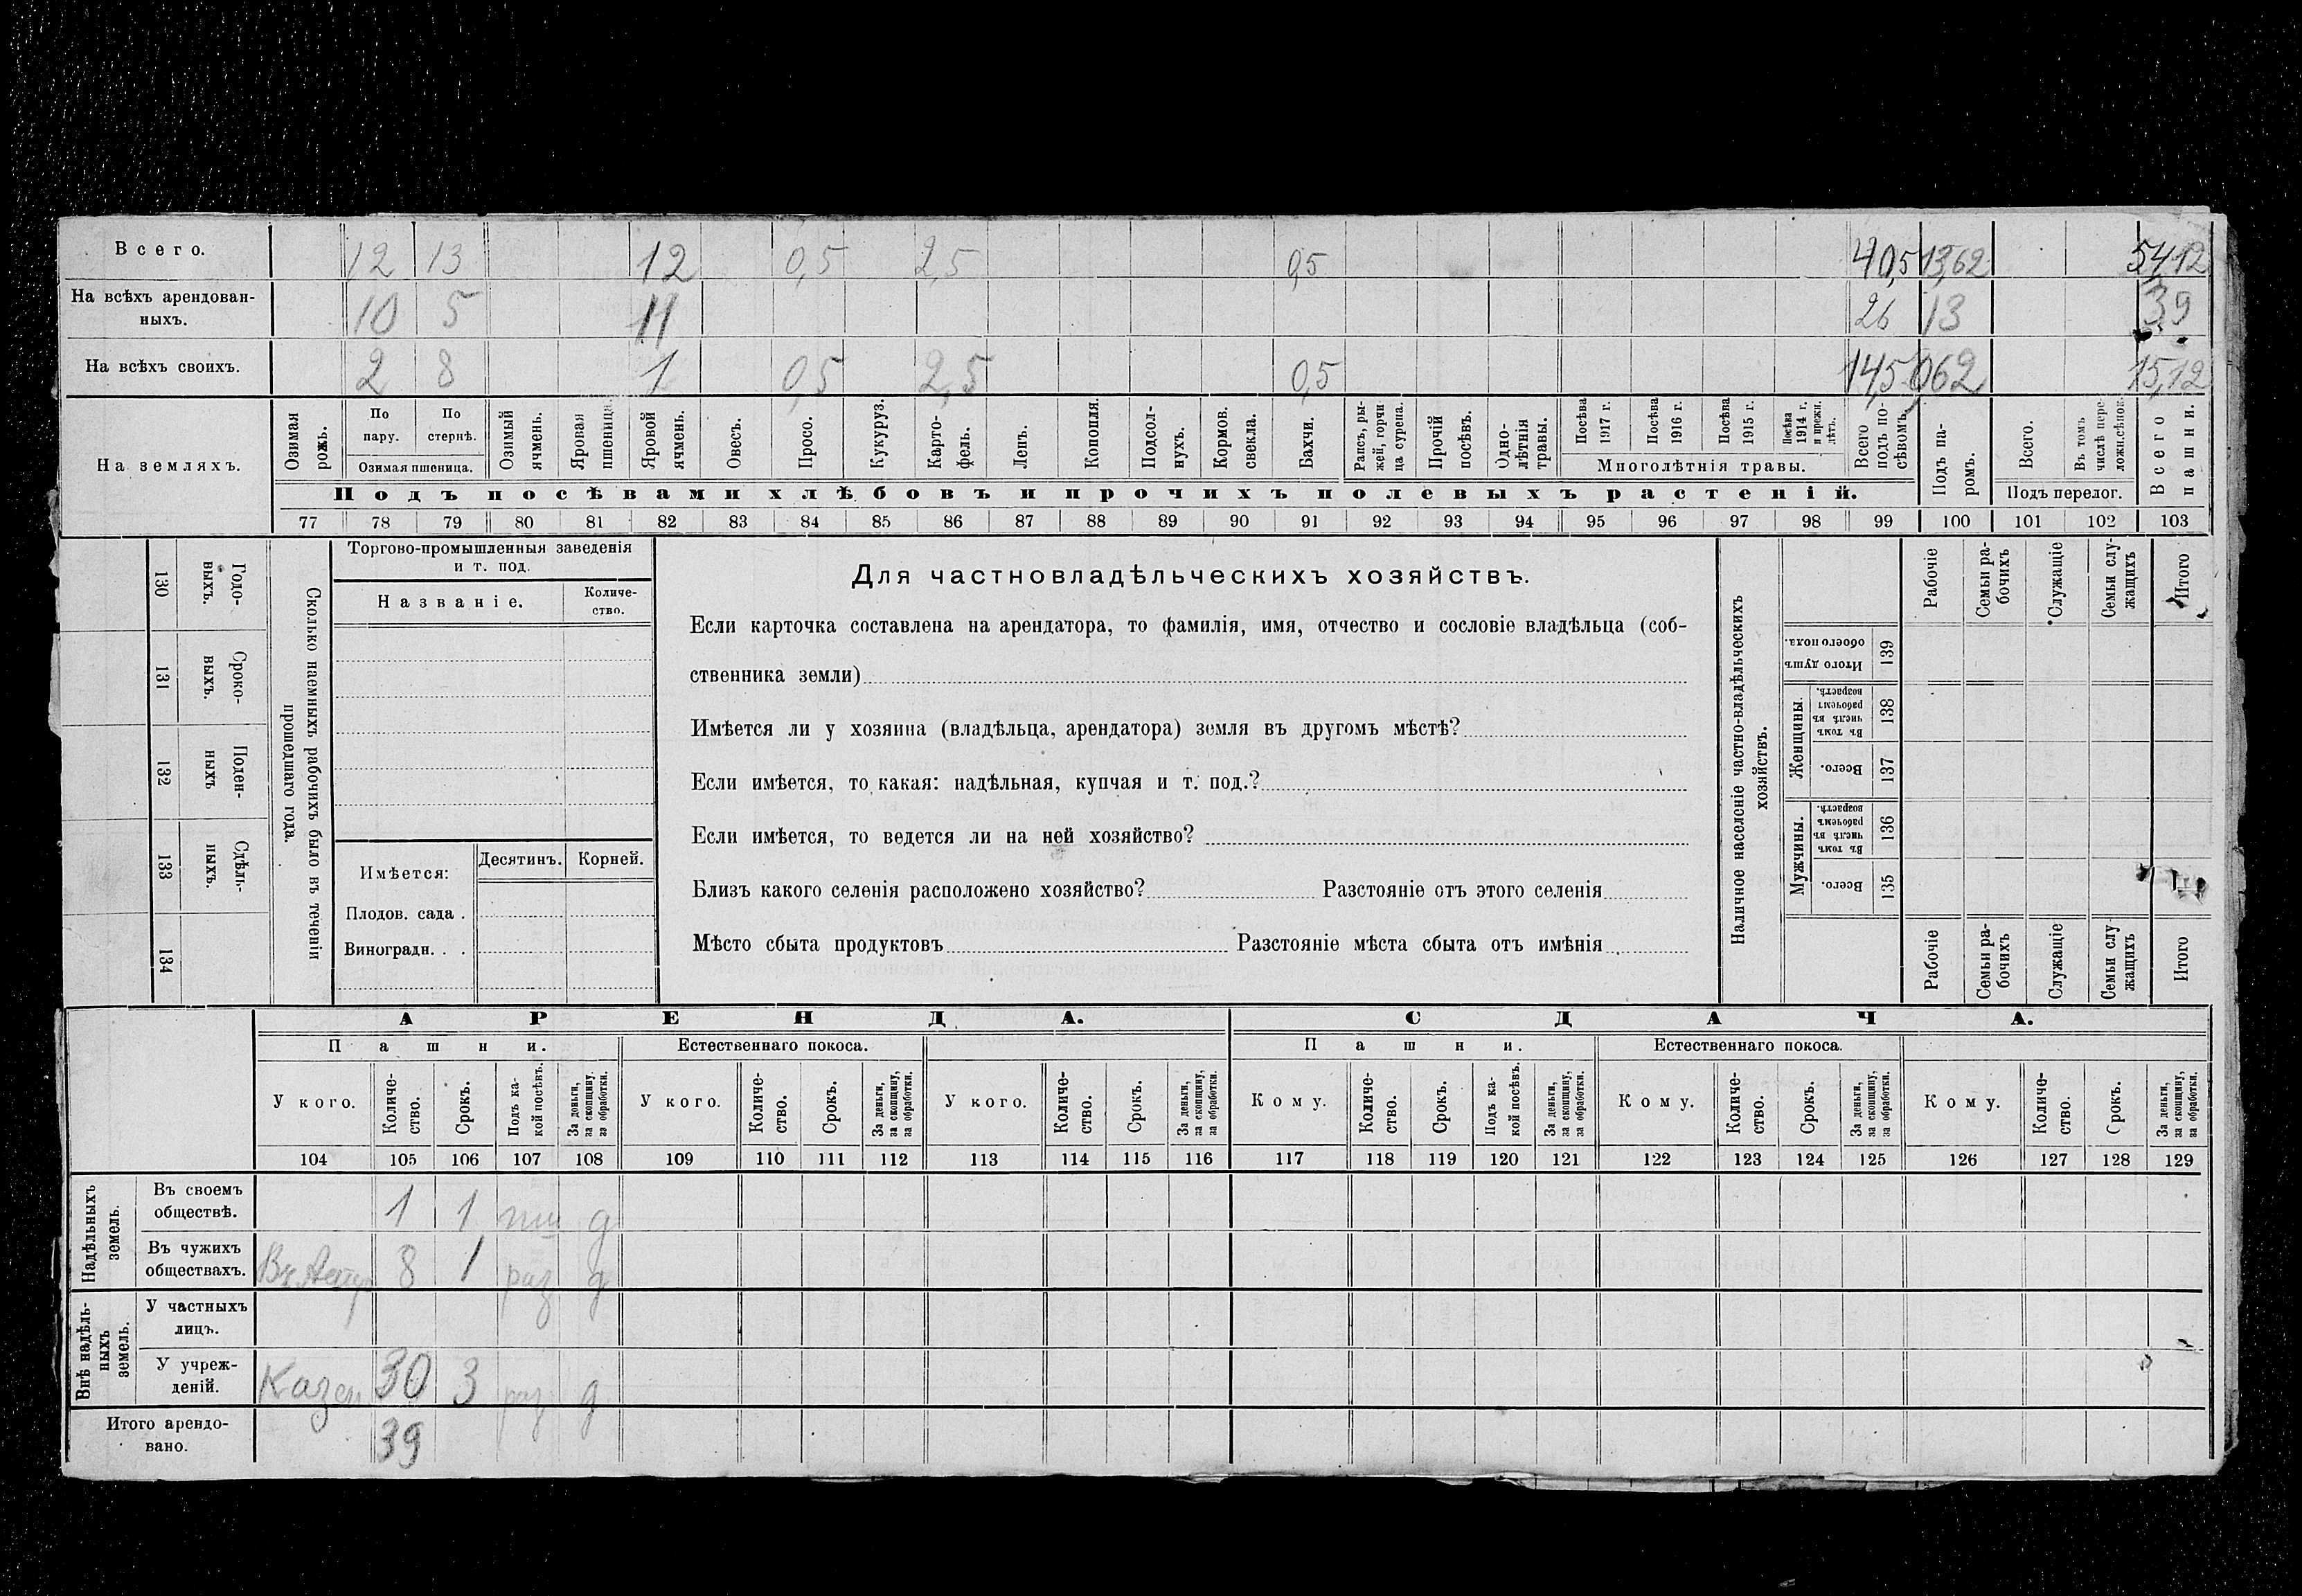 Всего. 12 13 12 0,5 2,5 0,5 40,5 13,62 54,12
На всѣхъ арендован-
ныхъ. 10 5 11 26 13 39
На всѣхъ своихъ. 2 8 1 0,5 2,5 0,5 14,5 0,62 15,12
На земляхъ.
Озимая рожь.
По пару.
По стернѣ.
Озимая пшеница.
Озимый ячмень.
Яровая пшеница.
Яровой ячмень.
Овесъ.
Просо.
Кукуруз.
Карто-
фель.
Ленъ.
Конопля.
Подсол-
нухъ.
Кормов. свекла.
Бахчи.
Рапсъ, ры-
жей, горчи
ца сурепа.
Прочій посѣвъ.
Одно-
лѣтнія травы.
Посѣва 1917 г.
Посѣва 1916 г.
Посѣва 1915 г.
Посѣва 1914 г. и прежн. лѣтъ.
Многолѣтнія травы.
Всего подъ по-
сѣвомъ.
Подъ па-
ромъ.
Всего.
Въ томъ числѣ пере-
ложн.сѣнок.
Подъ перелог.
Всего пашни.
Подъ посѣвами хлѣбовъ и прочихъ полевыхъ растеній.
77 78 79 80 81 82 83 84 85 86 87 88 89 90 91 92 93 94 95 96 97 98 99 100 101 102 103
130 Годо-
выхъ.
131 Сроко-
выхъ.
132 Поден-
ныхъ
133 Сдѣль-
ныхъ.
134
Сколько наемныхъ рабочихъ было въ теченіи
прошедшаго года.
Торгово-промышленныя заведенія
и т. под.
Названіе.
Количе-
ство.
Имѣется:
Десятинъ. Корней.
Плодов. сада .
Виноградн. . .
Для частновладѣльческихъ хозяйствъ.
Если карточка составлена на арендатора, то фамилія, имя, отчество и сословіе владѣльца (соб-
ственника земли)
Имѣется ли у хозяина (владѣльца, арендатора) земля въ другомъ мѣстѣ?
Если имѣется, то какая: надѣльная, купчая и т. под.?
Если имѣется, то ведется ли на ней хозяйство?
Близъ какого селенія расположено хозяйство? Разстояніе отъ этого селенія
Мѣсто сбыта продуктовъ Разстояніе мѣста сбыта отъ имѣнія
Наличное населеніе частно-владѣльческихъ
хозяйствъ.
Рабочіе
Семьи ра-
бочихъ
Служащіе
Семьи слу-
жащихъ
Итого
Итого душъ обоего пола. 139
Женщины.
Въ томъ числѣ въ рабочемъ возрастѣ. 138
Всего. 137
Мужчины.
Въ томъ числѣ въ рабочемъ возрастѣ. 136
Всего. 135
Рабочіе
Семьи ра-
бочихъ
Служащіе
Семьи слу
жащихъ
Итого
АРЕНДА. СДАЧА.
Пашни. Естественнаго покоса. Пашни. Естественнаго покоса.
У кого.
Количе-
ство.
Срокъ.
Подъ ка-
кой посѣвъ.
За деньги,
за скопщину,
за обработки.
У кого.
Количе-
ство.
Срокъ.
За деньги,
за скопщину,
за обработки.
У кого.
Количе-
ство.
Срокъ.
За деньги,
за скопщину,
за обработки.
Кому.
Количе-
ство.
Срокъ.
Подъ ка-
кой посѣвъ.
За деньги,
за скопщину,
за обработки.
Кому.
Количе-
ство.
Срокъ.
За деньги,
за скопщину,
за обработки.
Кому.
Количе-
ство.
Срокъ.
За деньги,
за скопщину,
за обработки.
104 105 106 107 108 109 110 111 112 113 114 115 116 117 118 119 120 121 122 123 124 125 126 127 128 129
Надѣльныхъ
земель.
Въ своемъ
обществѣ. 1 1 пш д
Въ чужихъ
обществахъ. Въ 8 1 раз д
Внѣ надѣль-
ныхъ
земель.
У частныхъ
лицъ.
У учреж-
деній. Казен 30 3 раз д
Итого арендо-
вано. 39